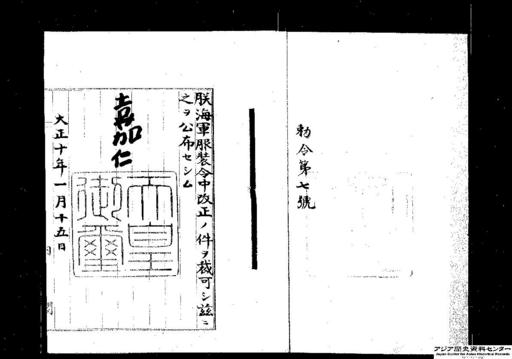 勅令第七號
朕海軍服裝令中改正ノ件ヲ裁可シ茲ニ
之ヲ公布セシム
嘉仁
天皇
御璽
大正十年一月十五日
アジア歴史資料センター
Japan Center for Asian Historical Records